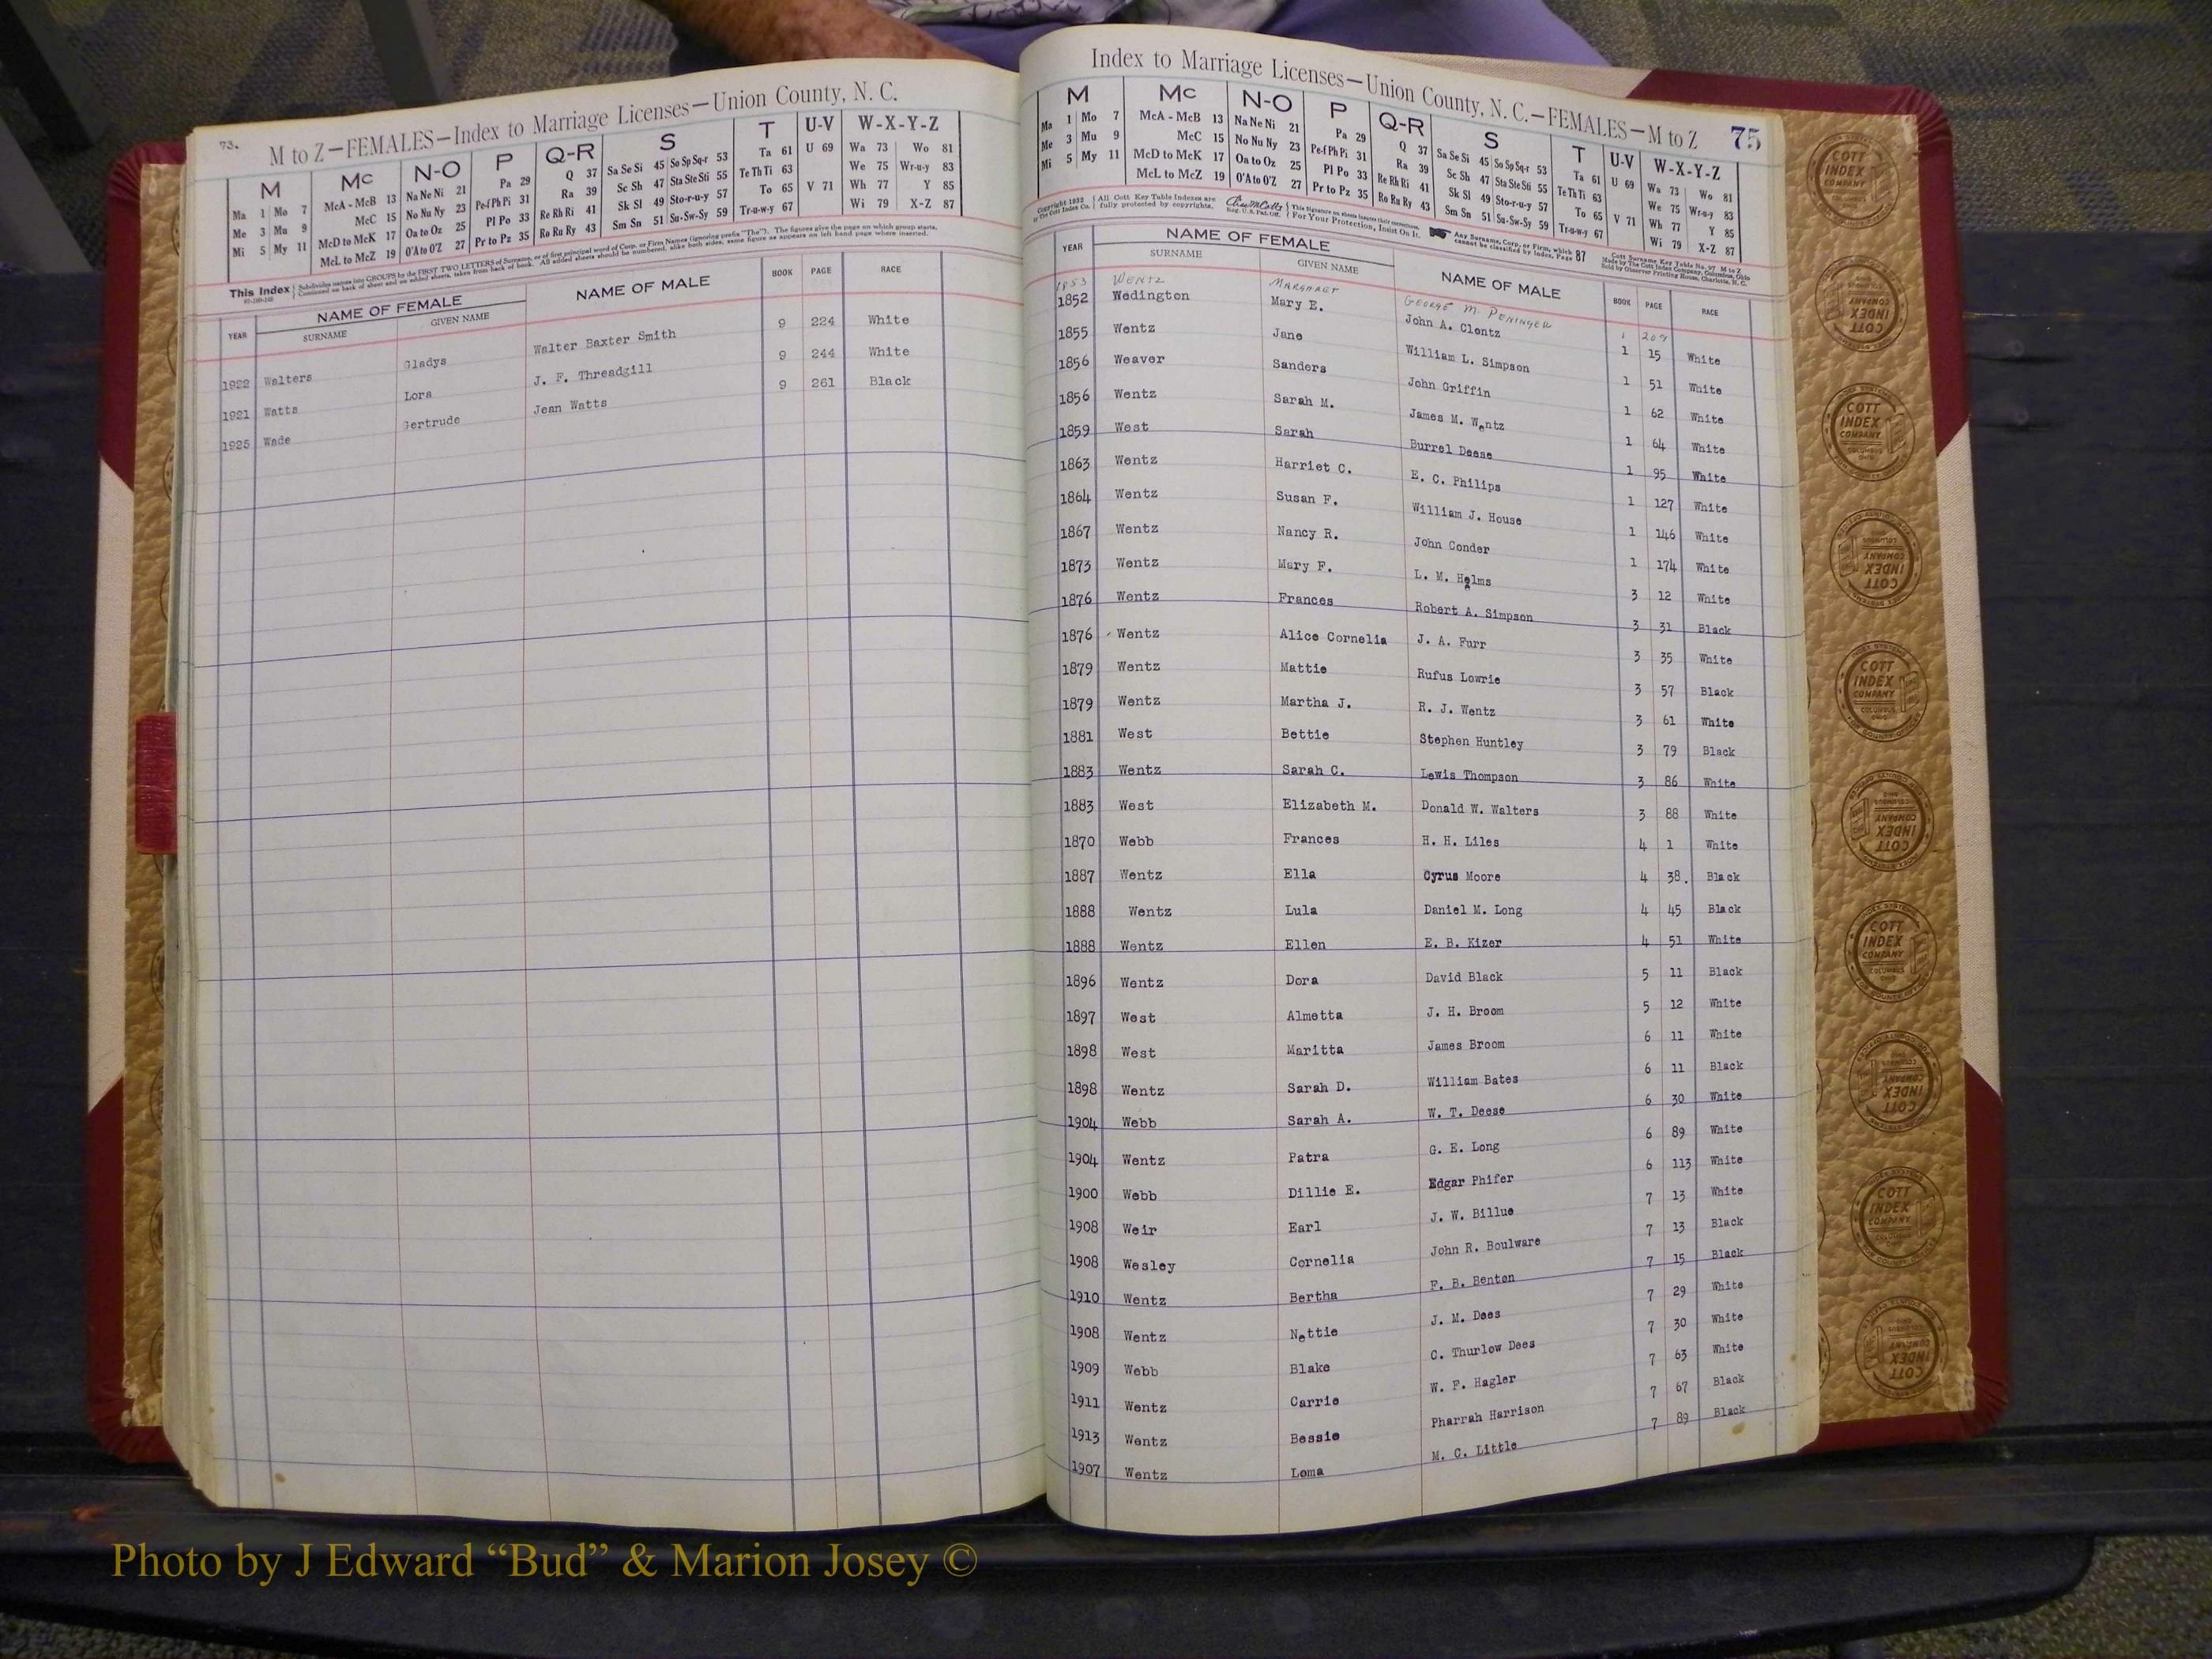 73.
M to Z—FEMALES—Index to Marriage Licenses—Union County, N. C.
M Mc N-O P Q-R S T U-V W-X-Y-Z
Ma 1 Mo 7 McA - McB 13 Na Ne Ni 21 Pa 29 Q 37 Sa Se Si 45 So Sp Sq-r 53 Ta 61 U 69 Wa 73 Wo 81
Me 3 Mu 9 McC 15 No Nu Ny 23 Pe-f Ph Pi 31 Ra 39 Sc Sh 47 Sta Ste Sti 55 Te Th Ti 63 We 75 Wr-u-y 83
Mi 5 My 11 McD to McK 17 Oa to Oz 25 Pl Po 33 Re Rh Ri 41 Sk Sl 49 Sto-r-u-y 57 To 65 V 71 Wh 77 Y 85
McL to McZ 19 O'A to O'Z 27 Pr to Pz 35 Ro Ru Ry 43 Sm Sn 51 Su-Sw-Sy 59 Tr-u-w-y 67 Wi 79 X-Z 87
This Index Subdivides names into GROUPS by the FIRST TWO LETTERS of Surname, or of first principal word of Corp. or Firm Names (ignoring prefix "The"). The figures give the page on which group starts.
Continued on back of sheet and on added sheets, taken from back of book. All added sheets should be numbered, alike both sides, same figure as appears on left hand page where inserted.
YEAR NAME OF FEMALE NAME OF MALE BOOK PAGE RACE
SURNAME GIVEN NAME
1922 Walters Gladys Walter Baxter Smith 9 224 White
1921 Watts Lora J. F. Threadgill 9 244 White
1925 Wade Gertrude Jean Watts 9 261 Black
Index to Marriage Licenses—Union County, N. C.—FEMALES—M to Z 75
M Mc N-O P Q-R S T U-V W-X-Y-Z
Ma 1 Mo 7 McA - McB 13 Na Ne Ni 21 Pa 29 Q 37 Sa Se Si 45 So Sp Sq-r 53 Ta 61 U 69 Wa 73 Wo 81
Me 3 Mu 9 McC 15 No Nu Ny 23 Pe-f Ph Pi 31 Ra 39 Sc Sh 47 Sta Ste Sti 55 Te Th Ti 63 We 75 Wr-u-y 83
Mi 5 My 11 McD to McK 17 Oa to Oz 25 Pl Po 33 Re Rh Ri 41 Sk Sl 49 Sto-r-u-y 57 To 65 V 71 Wh 77 Y 85
McL to McZ 19 O'A to O'Z 27 Pr to Pz 35 Ro Ru Ry 43 Sm Sn 51 Su-Sw-Sy 59 Tr-u-w-y 67 Wi 79 X-Z 87
Copyright 1932 by The Cott Index Co. All Cott Key Table Indexes are fully protected by copyrights. Reg. U.S. Pat. Off. For Your Protection, Insist On It. Any Surname, Corp. or Firm, which cannot be classified by index, Page 87
YEAR NAME OF FEMALE NAME OF MALE BOOK PAGE RACE
SURNAME GIVEN NAME
1853 WENTZ MARGARET GEORGE M. PENINGER 1 207
1852 Wedington Mary E. John A. Clontz 1 15 White
1855 Wentz Jane William L. Simpson 1 51 White
1856 Weaver Sanders John Griffin 1 62 White
1856 Wentz Sarah M. James M. Wentz 1 64 White
1859 West Sarah Burrel Deese 1 95 White
1863 Wentz Harriet C. E. C. Philips 1 127 White
1864 Wentz Susan F. William J. House 1 146 White
1867 Wentz Nancy R. John Conder 1 174 White
1873 Wentz Mary F. L. M. Helms 3 12 White
1876 Wentz Frances Robert A. Simpson 3 31 Black
1876 Wentz Alice Cornelia J. A. Furr 3 35 White
1879 Wentz Mattie Rufus Lowrie 3 57 Black
1879 Wentz Martha J. R. J. Wentz 3 61 White
1881 West Bettie Stephen Huntley 3 79 Black
1883 Wentz Sarah C. Lewis Thompson 3 86 White
1883 West Elizabeth M. Donald W. Walters 3 88 White
1870 Webb Frances H. H. Liles 4 1 White
1887 Wentz Ella Cyrus Moore 4 38. Black
1888 Wentz Lula Daniel M. Long 4 45 Black
1888 Wentz Ellen E. B. Kizer 4 51 White
1896 Wentz Dora David Black 5 11 Black
1897 West Almetta J. H. Broom 5 12 White
1898 West Maritta James Broom 6 11 White
1898 Wentz Sarah D. William Bates 6 11 Black
1904 Webb Sarah A. W. T. Deese 6 30 White
1904 Wentz Patra G. E. Long 6 89 White
1900 Webb Dillie E. Edgar Phifer 6 113 White
1908 Weir Earl J. W. Billue 7 13 White
1908 Wesley Cornelia John R. Boulware 7 13 Black
1910 Wentz Bertha F. B. Benton 7 15 Black
1908 Wentz Nettie J. M. Dees 7 29 White
1909 Webb Blake C. Thurlow Dees 7 30 White
1911 Wentz Carrie W. F. Hagler 7 63 White
1913 Wentz Bessie Pharrah Harrison 7 67 Black
1907 Wentz Loma M. C. Little 7 89 Black
COTT INDEX COMPANY COLUMBUS OHIO
Photo by J Edward “Bud” & Marion Josey ©